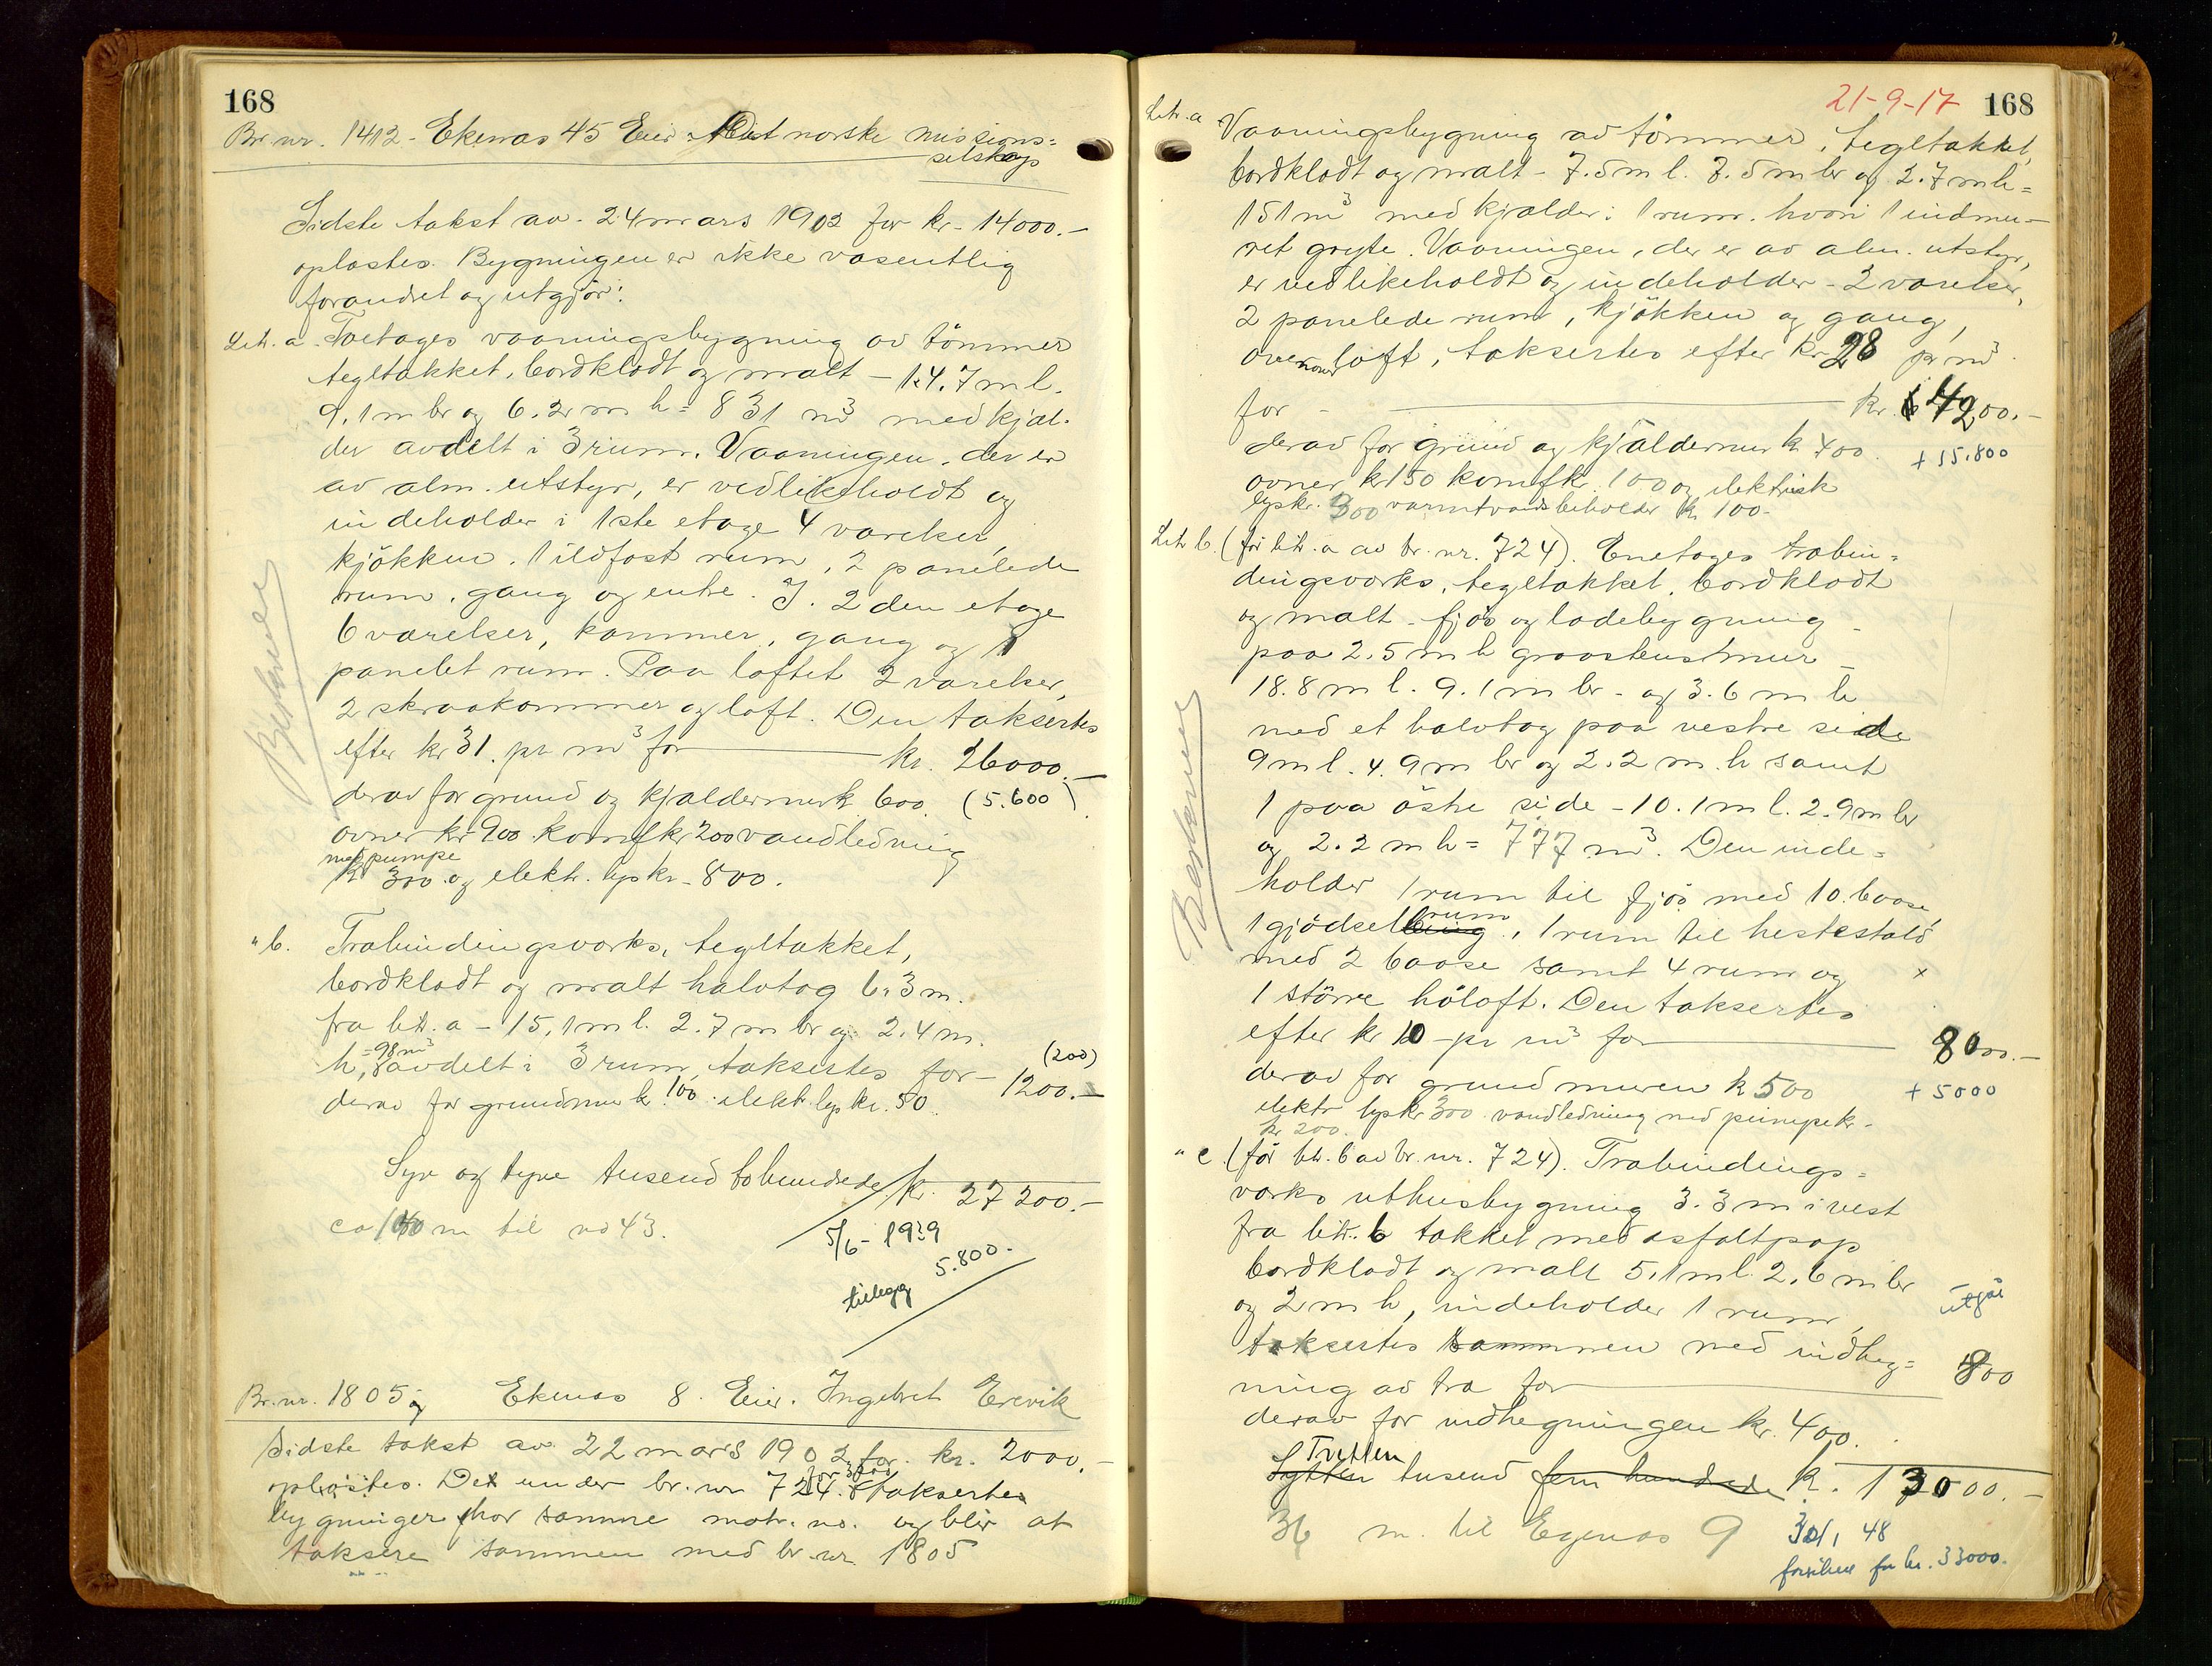 168
Br. nr. 1412 - Ekenæs 45 Eier: Det norske missions=
selskap
Sidste takst av 24 mars 1902 for kr. 14000.-
opløstes. Bygningen er ikke væsentlig
forandret og utgjør:
Litr. a. Toetages vaaningsbygning av tømmer
tegltækket, bordklædt og malt - 14.7 m l.
9.1 m br og 6.2 m h = 831 m³ med kjæl-
der avdelt i 3 rum. Vaaningen, der er
av alm. utstyr, er vedlikeholdt og
indeholder i 1ste etage 4 værelser,
kjøkken, 1 ildfast rum, 2 panelede
rum, gang og entre. I. 2den etage
6 værelser, kammer, gang og 1
panelet rum. Paa loftet 2 værelser,
2 skraakammer og loft. Den taksertes
efter kr 31. pr m³ for kr. 26000.-
derav for grund og kjældermur k 600. (5.600)
ovner kr 900 komf kr 200 vandledning
med pumpe
kr 300 og elektr. lys kr. 800.
" b. Træbindingsverks, tegltækket,
bordklædt og malt halvtag 6.3 m.
fra litr. a - 15.1 m l. 2.7 m br og 2.4 m.
= 98 m³
h, avdelt i 3 rum, taksertes for - (200)
1200.-
derav for grundmur kr. 100 elekt. lys kr. 50.
Syv og tyve tusend tohundrede kr. 27200.-
ca 140 m til no 43.
5/6 - 1939
tillegg 5.800.-
Br. nr. 1805 og Ekenæs 8. Eier. Ingebret Erevik
Sidste takst av 22 mars 1902 for kr. 2000.-
opløstes. Det under br. nr 724 for 3200 taksertes
bygninger har samme matr. no. og blir at
taksere sammen med br. nr 1805
21-9-17 168
Litr. a Vaaningsbygning av tømmer, tegltækket,
bordklædt og malt - 7.5 m l. 7.5 m br og 2.7 m h =
151 m³ med kjælder: 1 rum. hvori 1 indmu-
ret gryte. Vaaningen, der er av alm. utstyr,
er vedlikeholdt og indeholder - 2 værelser,
2 panelede rum, kjøkken og gang,
ovenover loft, taksertes efter kr 28 pr m³
for - kr. 4200.-
derav for grund og kjældermur k 400. + 15.800
ovner kr 150 komfk. 100 og elektrisk
lys kr. 300 varmtvandsbeholder kr 100.-
Litr b. (før litr. a av br. nr. 724). Enetages træbin=
dingsverks, tegltækket, bordklædt
og malt - fjøs og ladebygning -
paa 2.5 m h graastensmur -
18.8 m l. 9.1 m br - og 3.6 m h
med et halvtag paa vestre side
9 m l. 4.9 m br og 2.2 m. h samt
1 paa østre side - 10.1 m l. 2.9 m br
og 2.2 m h = 777 m³. Den inde=
holder 1 rum til fjøs med 10 baase
rum
1 gjødselbing, 1 rum til hestestald
med 2 baase samt 4 rum og x
1 større høloft. Den taksertes
efter kr 10 - pr m³ for 8000.-
derav for grundmuren k 500 + 5000
elektr lys kr 300 vandledning med pumpe kr.
kr 200.
" c (før litr. b av br. nr. 724). Træbindings=
værks uthusbygning 3.3 m i vest
fra litr. b tækket med asfaltpap
bordklædt og malt 5.1 m l 2.6 m br
og 2 m h, indeholder 1 rum, utgår
taksertes sammen med indheg=
ning av træ for 800
derav for indhegningen kr. 400.
Tretten
Sytten tusend fem hundrede k. 13000.-
36 m. til Egenæs 9 30/1 48
forsikres for kr. 33000.
Beskrevet
Beskrevet